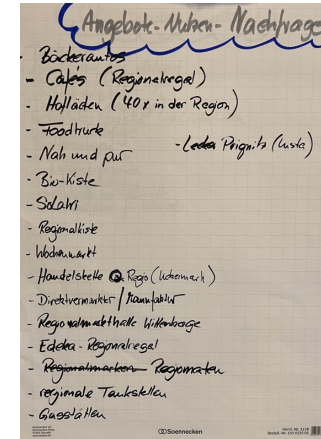 Angebote - Nutzen - Nachfrage
- Bäckerautos
- Cafés (Regionalregal)
- Hofläden (40 x in der Region)
- Foodtruck
- Lecker Prignitz (Insta)
- Nah und pur
- Bio-Kiste
- SoLaWi
- Regionalkiste
- Wochenmarkt
- Handelskette Q-Regio (Uckermark)
- Direktvermarkter / Manufaktur
- Regionalmarkthalle Wittenberge
- Edeka - Regionalregal
- Regionalmarken Regiomaten
- regionale Tankstellen
- Gaststätten
Soennecken